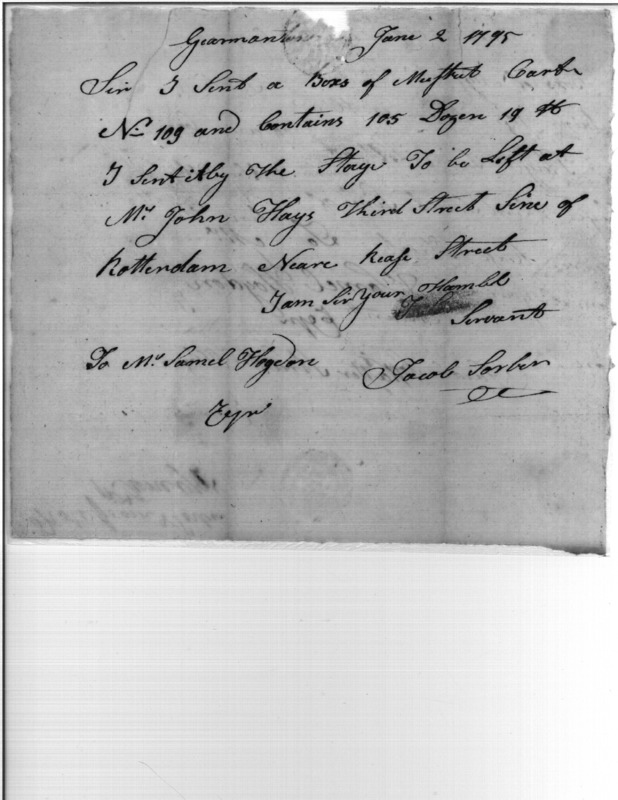 Gearman June 2 1795
Sir I Sent a Boxs of Musket Cart
No 109 and Contains 105 Dozen 19 lb
I Sent it by the Stage To be Left at
Mr John Hays Third Street Sine of
Rotterdam Neare Rease Street
I am Sir Your Hambl
Servant
To Mr Samel Hogdon
Jacob Sorber
Esqr